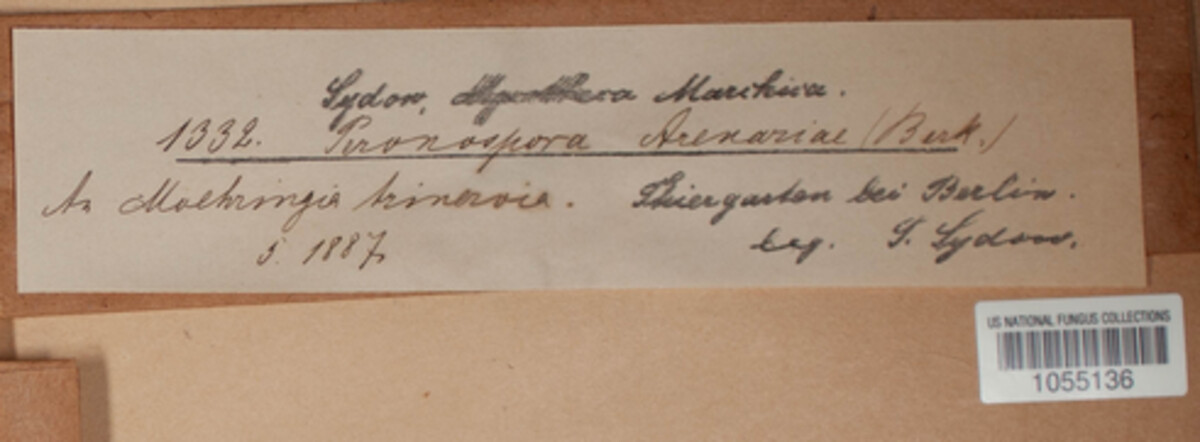 Sydow, Mycotheca Marchica.
1332. Peronospora Arenariae (Berk.)
An Moehringia trinervia. Thiergarten bei Berlin.
5. 1887. leg. P. Sydow.
US NATIONAL FUNGUS COLLECTIONS
1055136